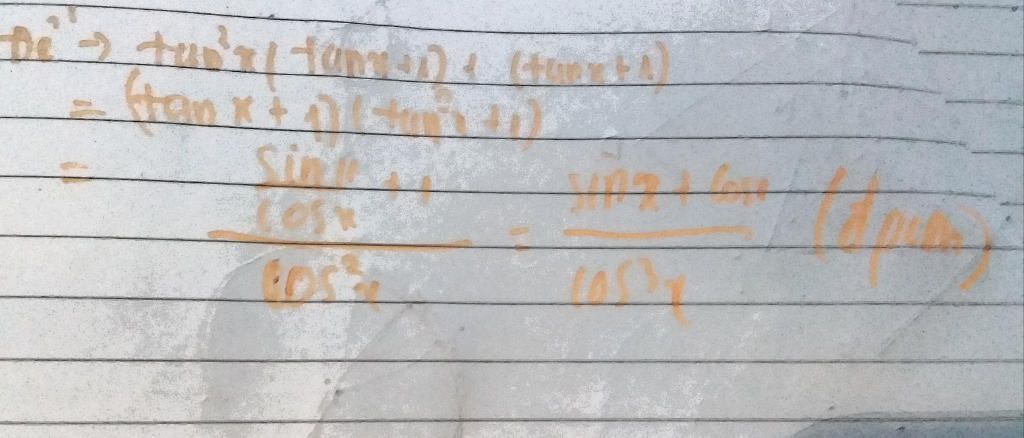 Đề → tan²x(tanx+1) + (tanx+1)
= (tan x + 1)(tan²x + 1)
= (sin x / cos x + 1) / cos²x = (sinx + cosx) / cos³x (đpcm)